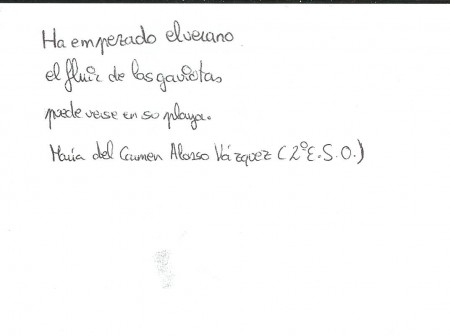 Ha empezado el verano
el fluir de las gaviotas
puede verse en su playa.
María del Carmen Alonso Vázquez (2º E.S.O.)